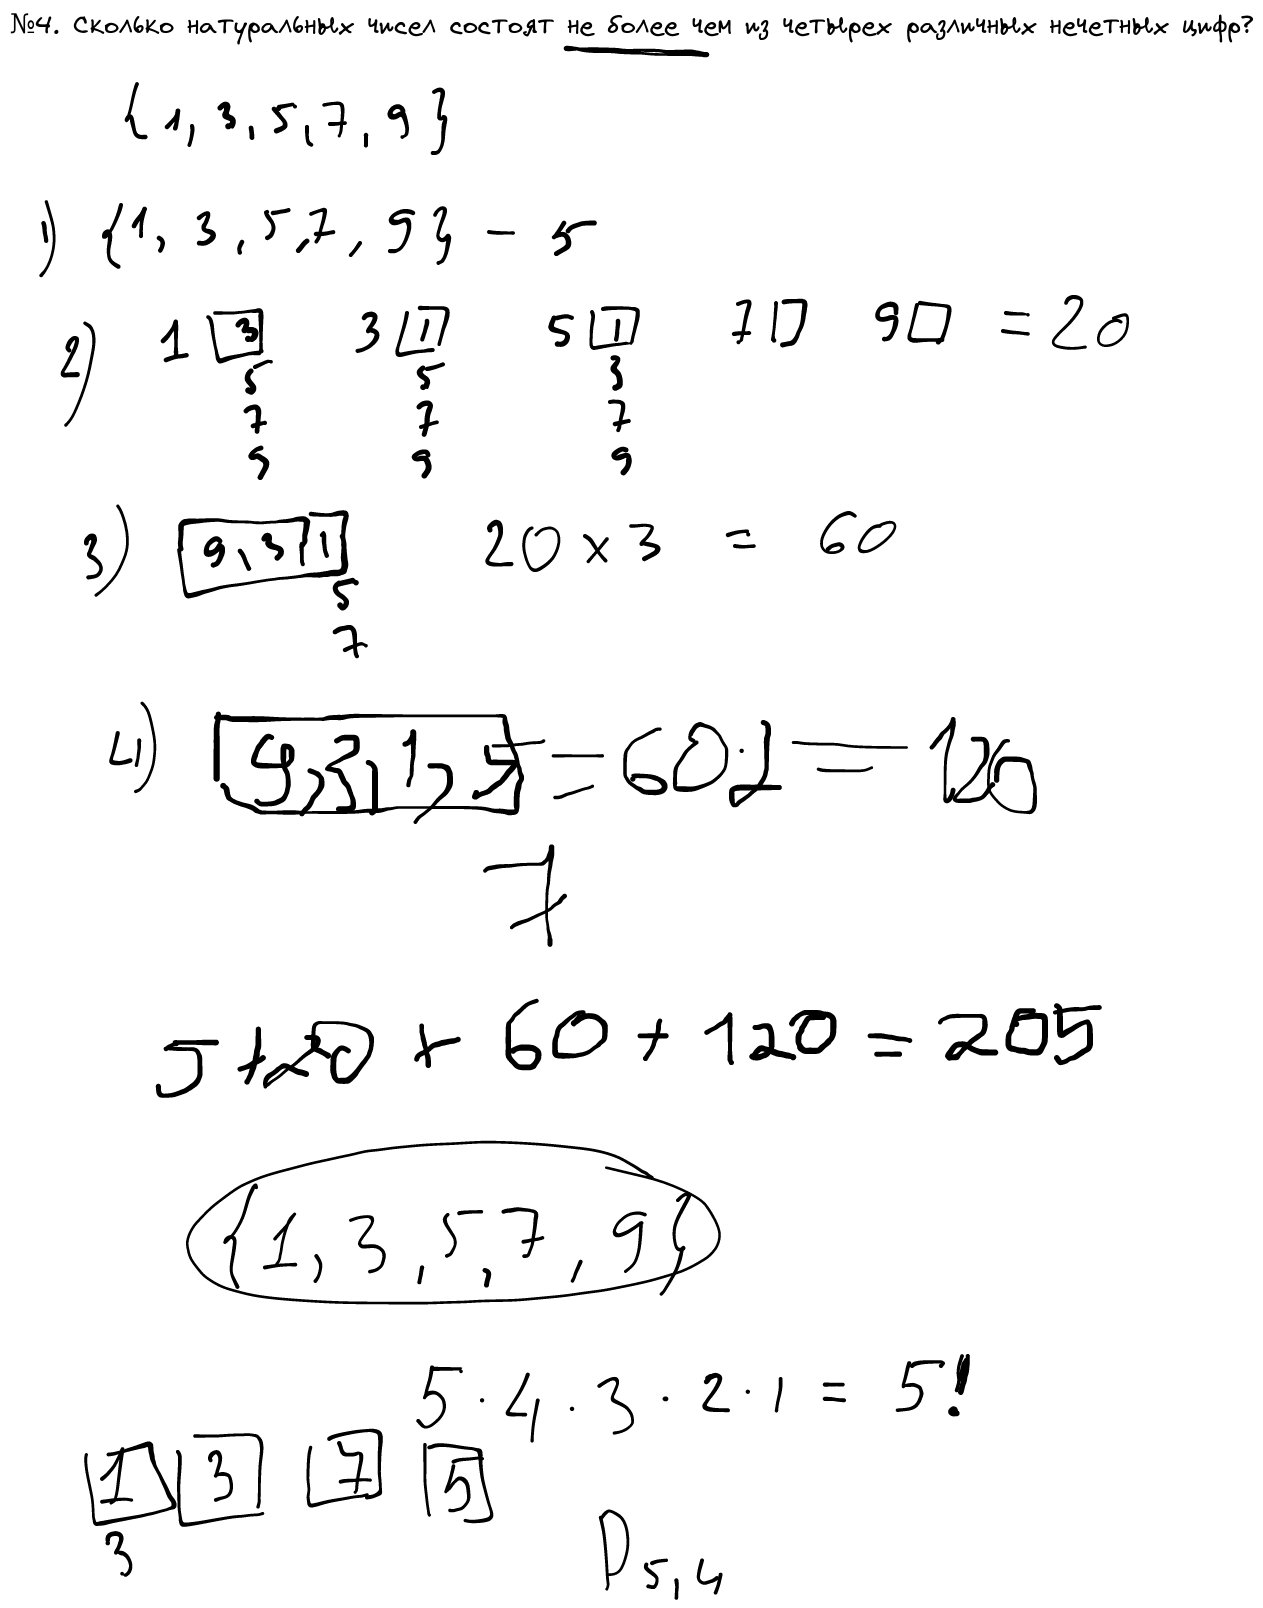 №4. Сколько натуральных чисел состоят не более чем из четырех различных нечетных цифр?
{1, 3, 5, 7, 9}
1) {1, 3, 5, 7, 9} - 5
2) 1 3 3 1 5 1 7 9 = 20
5 5 3
7 7 7
9 9 9
3) 9, 3 1 20 x 3 = 60
5
7
4) 9, 3, 1, 5 = 60 · 2 = 120
7
5 + 20 + 60 + 120 = 205
{1, 3, 5, 7, 9}
5 · 4 · 3 · 2 · 1 = 5!
1 3 7 5
3
P5,4